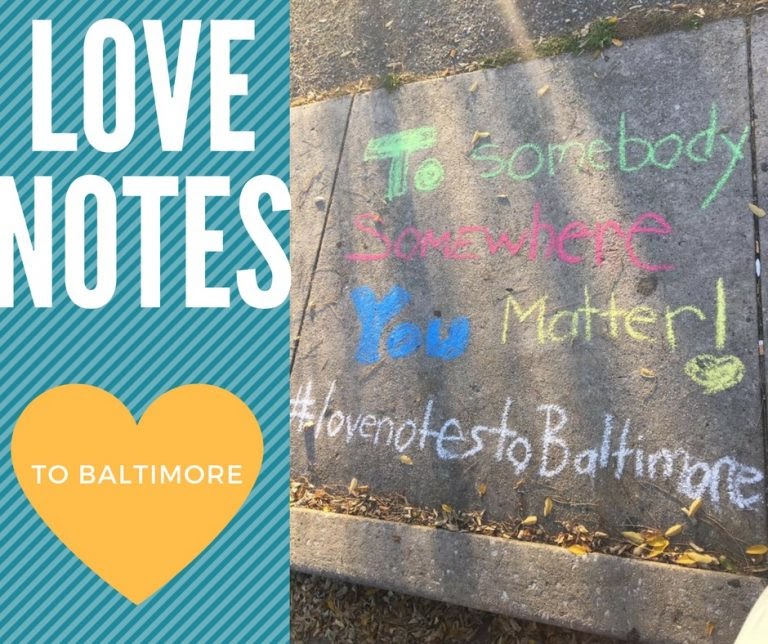 LOVE
NOTES
TO BALTIMORE
To Somebody
Somewhere
You Matter!
#lovenotestoBaltimore